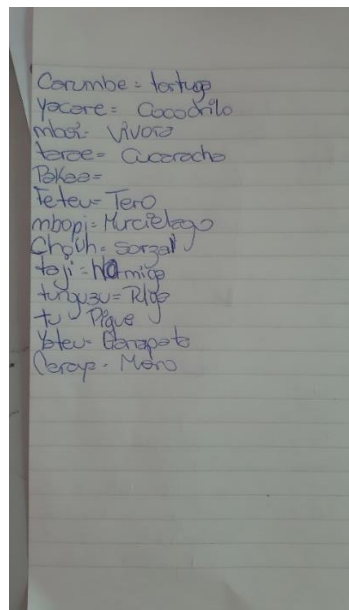 Carumbe = tortuga
Yacare = Cocodrilo
mboi = Vivora
tarae = Cucaracha
Pakaa =
Teteu = Tero
mbopi = Murcielago
= Sorzal
taji = Hormiga
tunguzu = Pulga
tu Pique
Yateu = Garrapata
Caraya - Mono